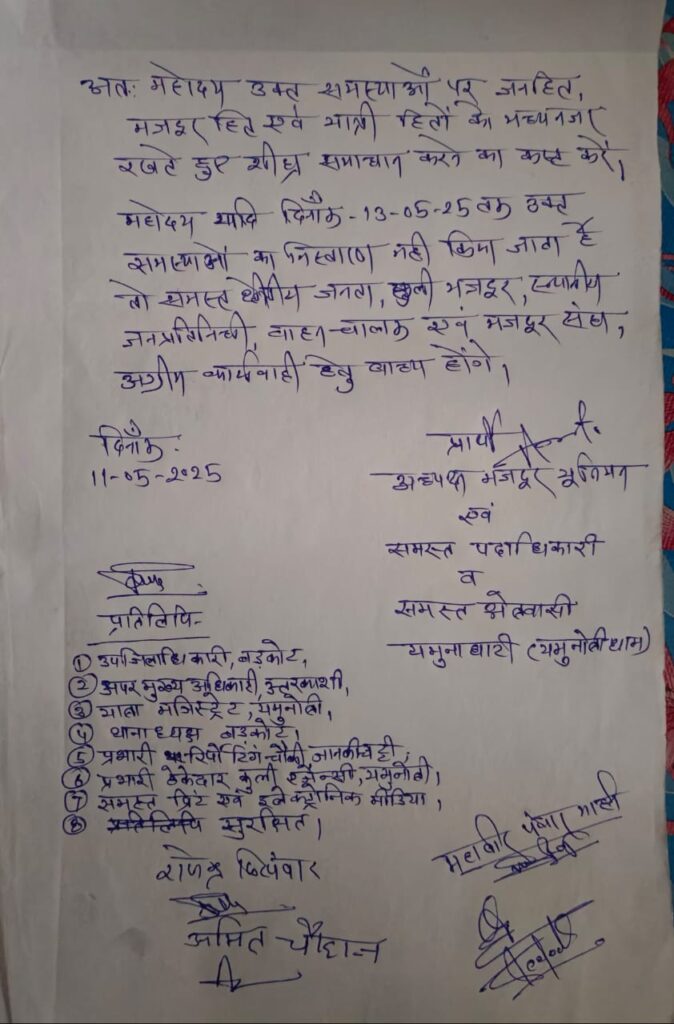 अतः महोदय उक्त समस्याओं पर जनहित,
मजदूर हित एवं यात्री हितों को मध्यनजर
रखते हुए शीघ्र समाधान करने का कष्ट करें,
महोदय यदि दिनाँक-13-05-25 तक उक्त
समस्याओं का निस्तारण नहीं किया जाता है
तो समस्त क्षेत्रीय जनता, कुली मजदूर, स्थानीय
जनप्रतिनिधी, वाहन-चालक एवं मजदूर संघ,
अग्रीम कार्यवाही हेतु बाध्य होंगे,
दिनाँक:
11-05-2025
प्रार्थी
अध्यक्ष मजदूर यूनियन
एवं
समस्त पदाधिकारी
व
समस्त क्षेत्रवासी
यमुनाघाटी (यमुनोत्रीधाम)
प्रतिलिपि-
① उपजिलाधिकारी, बड़कोट,
② अपर मुख्य अधिकारी, उत्तरकाशी,
③ यात्रा मजिस्ट्रेट, यमुनोत्री,
④ थानाध्यक्ष बड़कोट,
⑤ प्रभारी रिर्पोटिंग चौकी, जानकीचट्टी,
⑥ प्रभारी ठेकेदार कुली एजेन्सी, यमुनोत्री,
⑦ समस्त प्रिंट एवं इलेक्ट्रोनिक मीडिया,
⑧ सुरक्षित,
महावीर पंवार
अमित चौहान